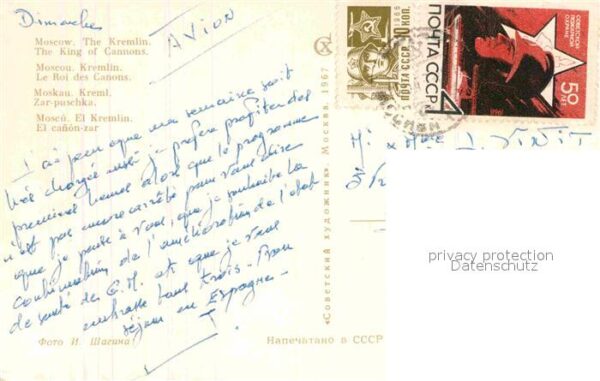 Dimanche
AVION
Moscow. The Kremlin.
The King of Cannons.
Moscou. Kremlin.
Le Roi des Canons.
Moskau. Kreml.
Zar-puschka.
Moscú. El Kremlin.
El cañón-zar
J'ai peur que ma semaine soit
très chargée aussi je préfère profiter des
premières heures alors que le programme
n'est pas encore arrêté pour vous dire
que je pense à vous, que je souhaite la
continuation de l'amélioration de l'état
de santé de G.M. et que je vous
embrasse tous trois. Bon
séjour en Espagne.
Фото И. Шагина
Напечатано в СССР
«Советский художник» Москва. 1967
1966
10 КОП.
ПОЧТА СССР
ПОЧТА СССР
4
СОВЕТСКОЙ
ПОЖАРНОЙ
ОХРАНЕ
50
ЛЕТ
privacy protection
Datenschutz